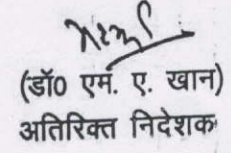 (डॉ0 एम. ए. खान)
अतिरिक्त निदेशक